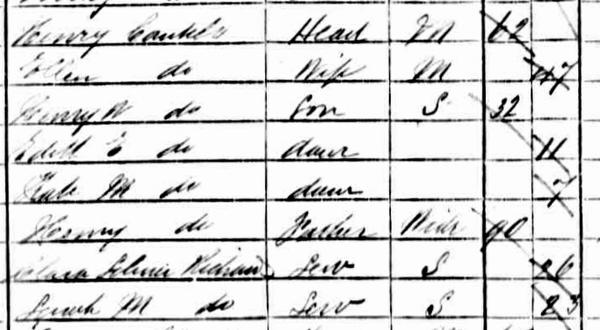 Henry Head M 62
Ellen do Wife M 47
Henry W do Son S 32
Edith E do daur 11
Kate M do daur 7
Henry do Father Widr 90
Clara Serv S 26
M do Serv S 23